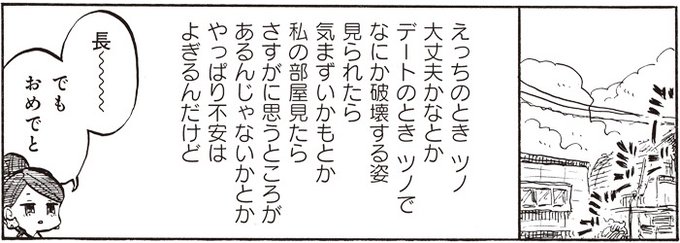 えっちのとき ツノ
大丈夫かなとか
デートのとき ツノで
なにか破壊する姿
見られたら
気まずいかもとか
私の部屋見たら
さすがに思うところが
あるんじゃないかとか
やっぱり不安は
よぎるんだけど
長〜〜〜〜〜
でも
おめでと